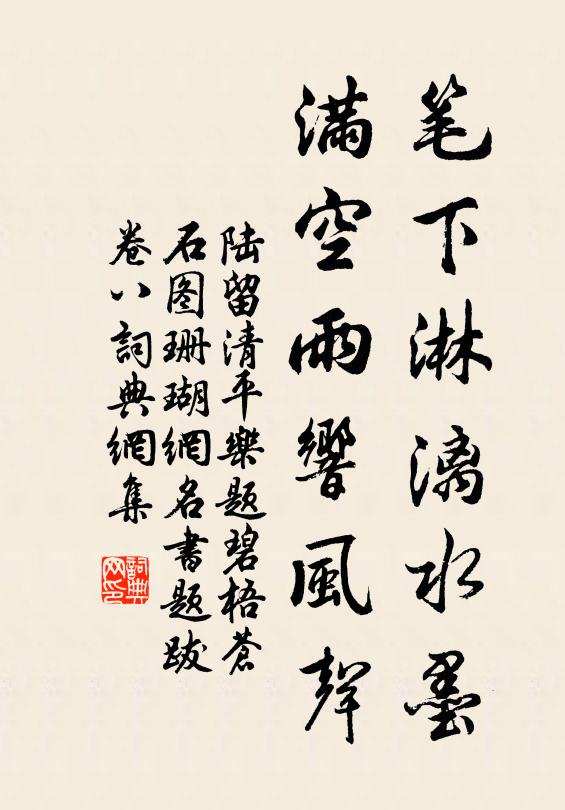 笔下淋漓水墨
滿空雨響風聲
陆留清平樂题碧梧蒼
石图珊瑚網名書题跋
卷八詞典網集
詞典网印